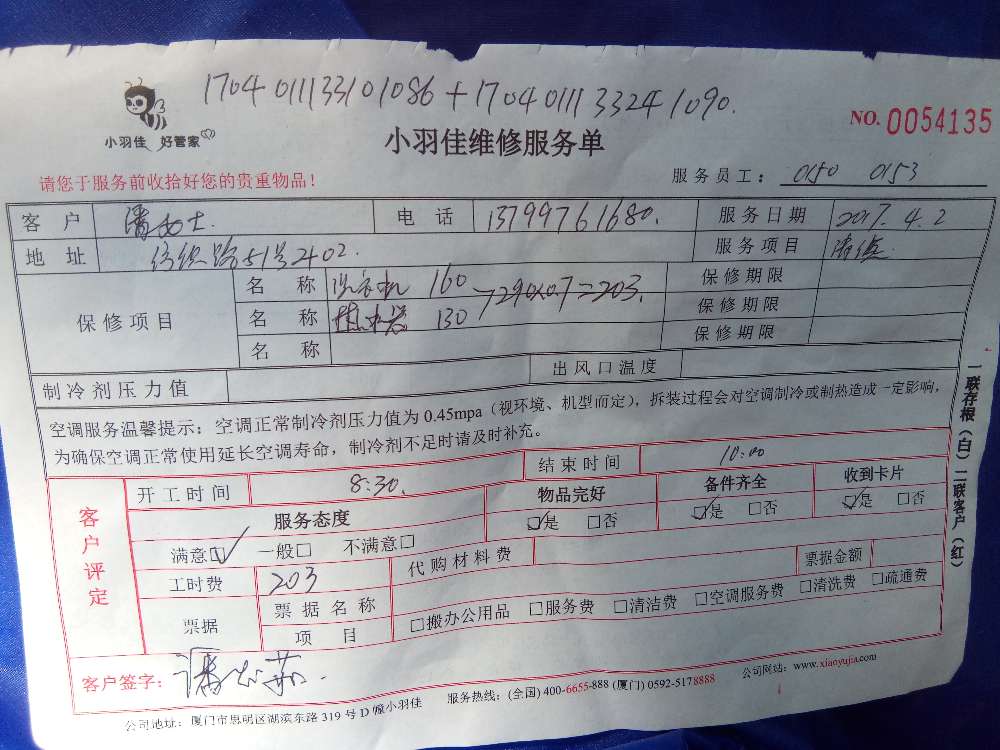 1704011133101086+17040111332410​90.
小羽佳 好管家
NO. 0054135
小羽佳维修服务单
请您于服务前收拾好您的贵重物品!
服务员工: 0150 0153
客户 潘女士. 电话 13799761680. 服务日期 2017.4.2
地址 纺织路51号2402. 服务项目 清洗
保修项目 名称 洗衣机 160 290×0.7=203. 保修期限
名称 热水器 130 保修期限
名称 保修期限
制冷剂压力值 出风口温度
空调服务温馨提示:空调正常制冷剂压力值为0.45mpa(视环境、机型而定),拆装过程会对空调制冷或制热造成一定影响,
为确保空调正常使用延长空调寿命,制冷剂不足时请及时补充。
客户评定
开工时间 8:30. 结束时间 10:00
服务态度 物品完好 备件齐全 收到卡片
满意☑ 一般□ 不满意□ ☑是 □否 ☑是 □否 ☑是 □否
工时费 203 代购材料费 票据金额
票据 票据名称 项目 □搬办公用品 □服务费 □清洁费 □空调服务费 □清洗费 □疏通费
客户签字:
公司地址:厦门市思明区湖滨东路319号D幢小羽佳 服务热线:(全国)400-6655-888 (厦门)0592-5178888 公司网站:www.xiaoyujia.com
一联存根(白) 二联客户(红)